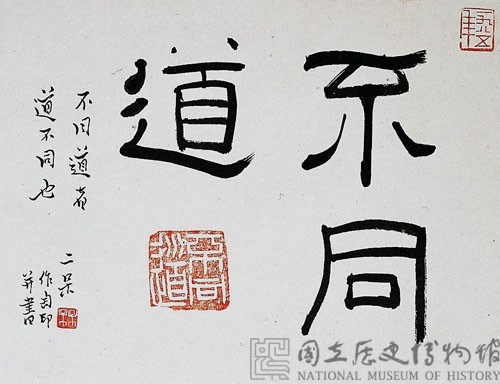 不同
道
不同道者
道不同也
二呆
作印
并書
國立歷史博物館
NATIONAL MUSEUM OF HISTORY